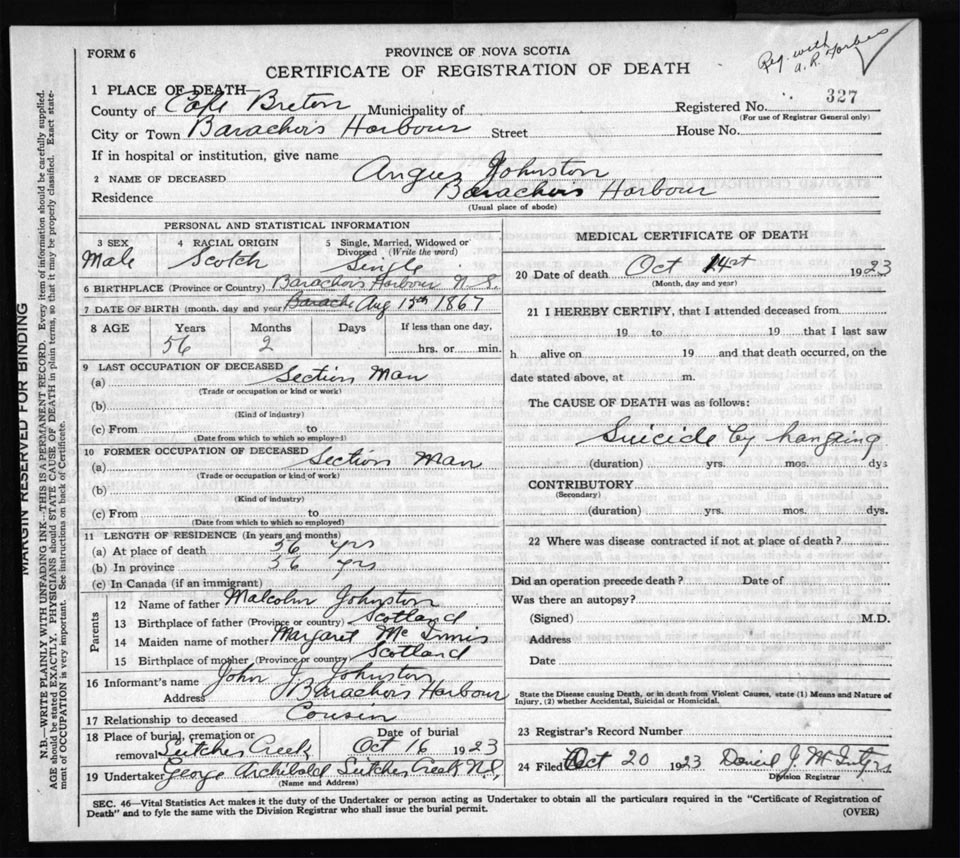 FORM 6
PROVINCE OF NOVA SCOTIA
CERTIFICATE OF REGISTRATION OF DEATH
Reg. with
A. R. Forbes
1 PLACE OF DEATH
County of Cape Breton Municipality of
Registered No. 327
(For use of Registrar General only)
City or Town Barachois Harbour Street House No.
If in hospital or institution, give name
2 NAME OF DECEASED Angus Johnston
Residence Barachois Harbour
(Usual place of abode)
PERSONAL AND STATISTICAL INFORMATION
3 SEX 4 RACIAL ORIGIN 5 Single, Married, Widowed or
Divorced (Write the word)
Male Scotch Single
6 BIRTHPLACE (Province or Country) Barachois Harbour N.S.
7 DATE OF BIRTH (month, day and year) Barache Aug 15th 1867
8 AGE Years Months Days If less than one day,
56 2 hrs. or min.
9 LAST OCCUPATION OF DECEASED
(a) Section Man
(Trade or occupation or kind or work)
(b)
(Kind of industry)
(c) From to
(Date from which to which so employed)
10 FORMER OCCUPATION OF DECEASED
(a) Section Man
(Trade or occupation or kind of work)
(b)
(Kind of industry)
(c) From to
(Date from which to which so employed)
11 LENGTH OF RESIDENCE (In years and months)
(a) At place of death 56 yrs
(b) In province 56 yrs
(c) In Canada (if an immigrant)
Parents
12 Name of father Malcolm Johnston
13 Birthplace of father (Province or country) Scotland
14 Maiden name of mother Margaret McInnis
15 Birthplace of mother (Province or country) Scotland
16 Informant's name John J. Johnston
Address Barachois Harbour
17 Relationship to deceased Cousin
18 Place of burial, cremation or Date of burial
removal Leitches Creek Oct 16 1923
19 Undertaker George Archibald Leitches Creek N.S.
(Name and Address)
MEDICAL CERTIFICATE OF DEATH
20 Date of death Oct 14st 1923
(Month, day and year)
21 I HEREBY CERTIFY, that I attended deceased from
19 to 19 that I last saw
h alive on 19 and that death occurred, on the
date stated above, at m.
The CAUSE OF DEATH was as follows:
Suicide by hanging
(duration) yrs. mos. dys
CONTRIBUTORY
(Secondary)
(duration) yrs. mos. dys.
22 Where was disease contracted if not at place of death?
Did an operation precede death? Date of
Was there an autopsy?
(Signed) M.D.
Address
Date
State the Disease causing Death, or in death from Violent Causes, state (1) Means and Nature of
Injury, (2) whether Accidental, Suicidal or Homicidal.
23 Registrar's Record Number
24 Filed Oct 20 1923
Division Registrar
SEC. 46—Vital Statistics Act makes it the duty of the Undertaker or person acting as Undertaker to obtain all the particulars required in the "Certificate of Registration of
Death" and to fyle the same with the Division Registrar who shall issue the burial permit.
(OVER)
MARGIN RESERVED FOR BINDING
N.B.—WRITE PLAINLY WITH UNFADING INK—THIS IS A PERMANENT RECORD. Every item of information should be carefully supplied.
AGE should be stated EXACTLY. PHYSICIANS should STATE CAUSE OF DEATH in plain terms, so that it may be properly classified. Exact state-
ment of OCCUPATION is very important. See instructions on back of Certificate.